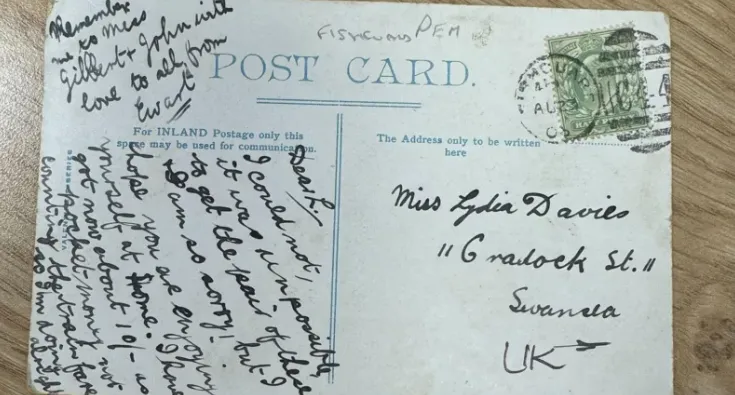 Remember
me to Miss
Gilbert & John with
love to all from
Ewart
FISHGUARD PEM
POST CARD.
For INLAND Postage only this
space may be used for communication.
The Address only to be written
here
AU 23
SERIES
Dear L.
I could not,
it was impossible
to get the pair of these
I am so sorry! but I
hope you are enjoying
yourself at home. I have
got now about 10/- as
pocket-money not
counting the train fare
so I'm doing
alright
Miss Lydia Davies
11 Cradock St.
Swansea
UK